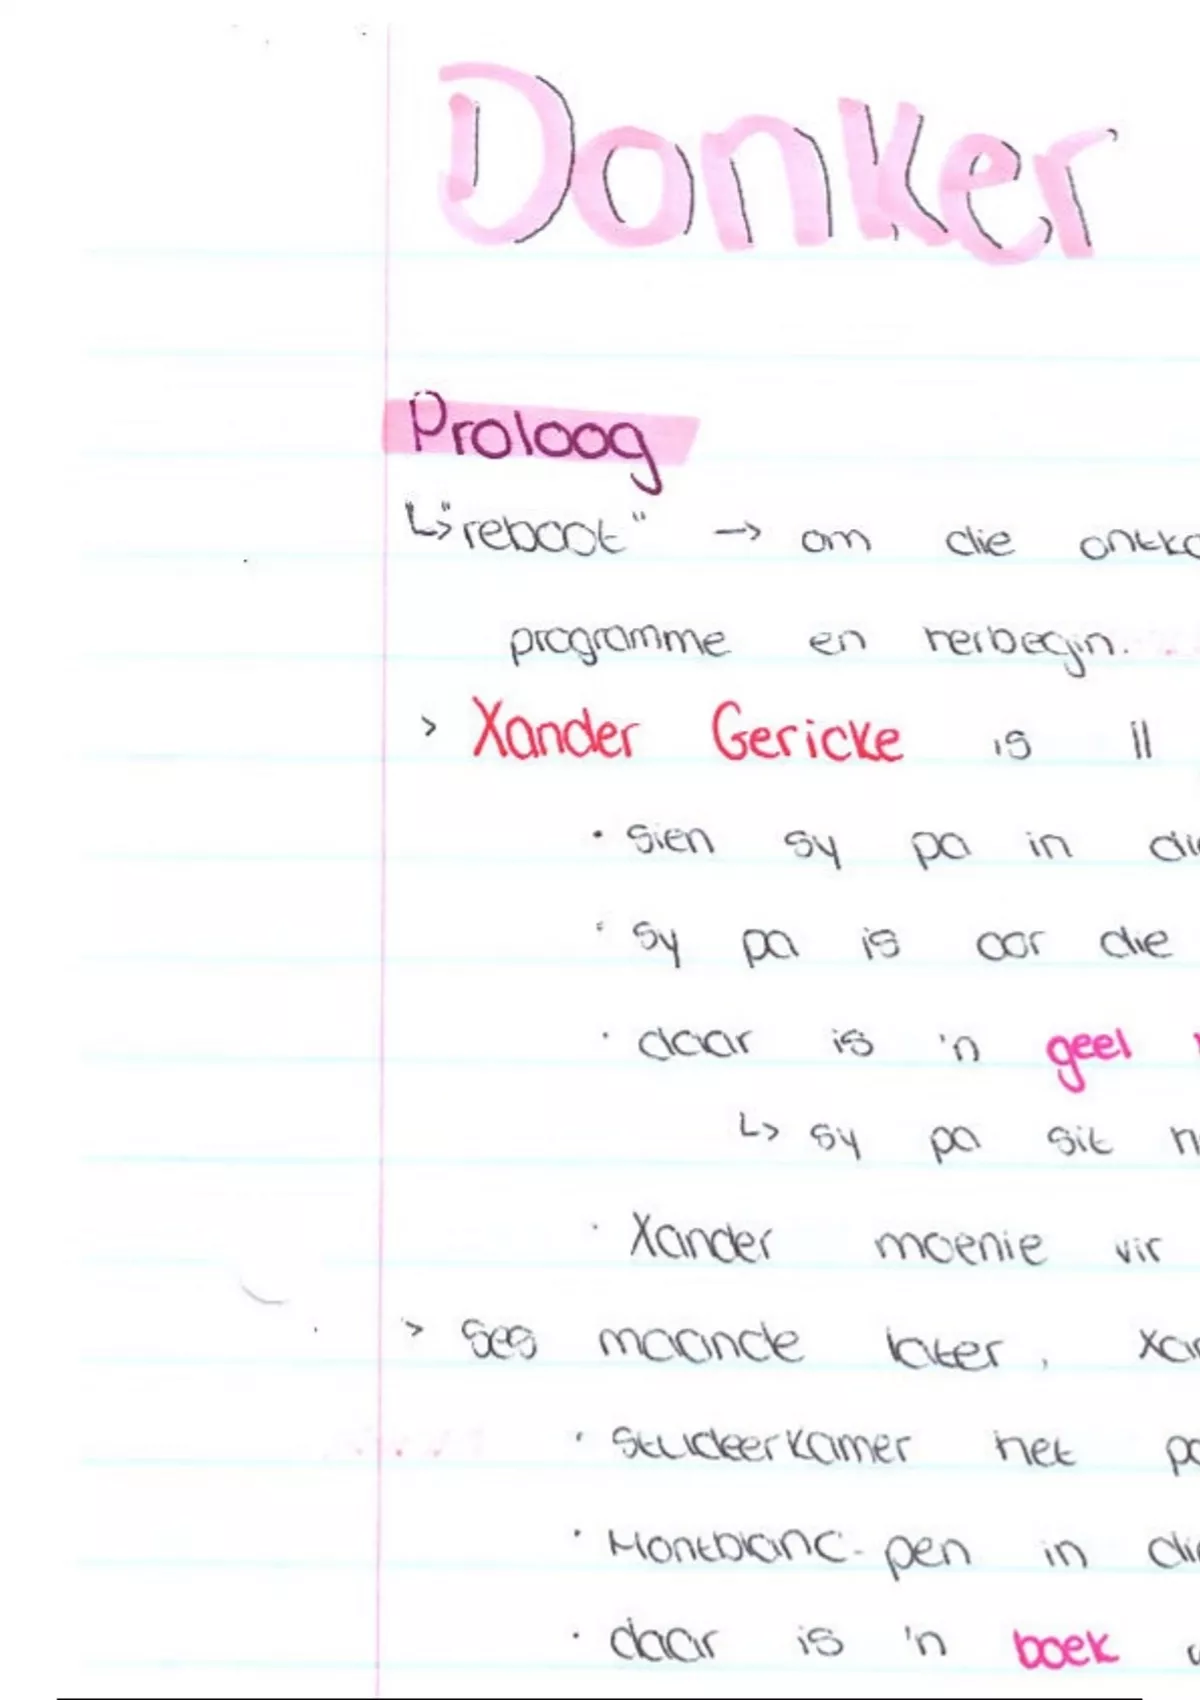 Donker
Proloog
↳ "reboot" → om die ontko
programme en herbegin.
> Xander Gericke is 11
• sien sy pa in die
• sy pa is oor die
• daar is 'n geel
↳ sy pa sit h
• Xander moenie vir
> Ses maande later, Xan
• studeerkamer het pa
• Montblanc-pen in die
• daar is 'n boek